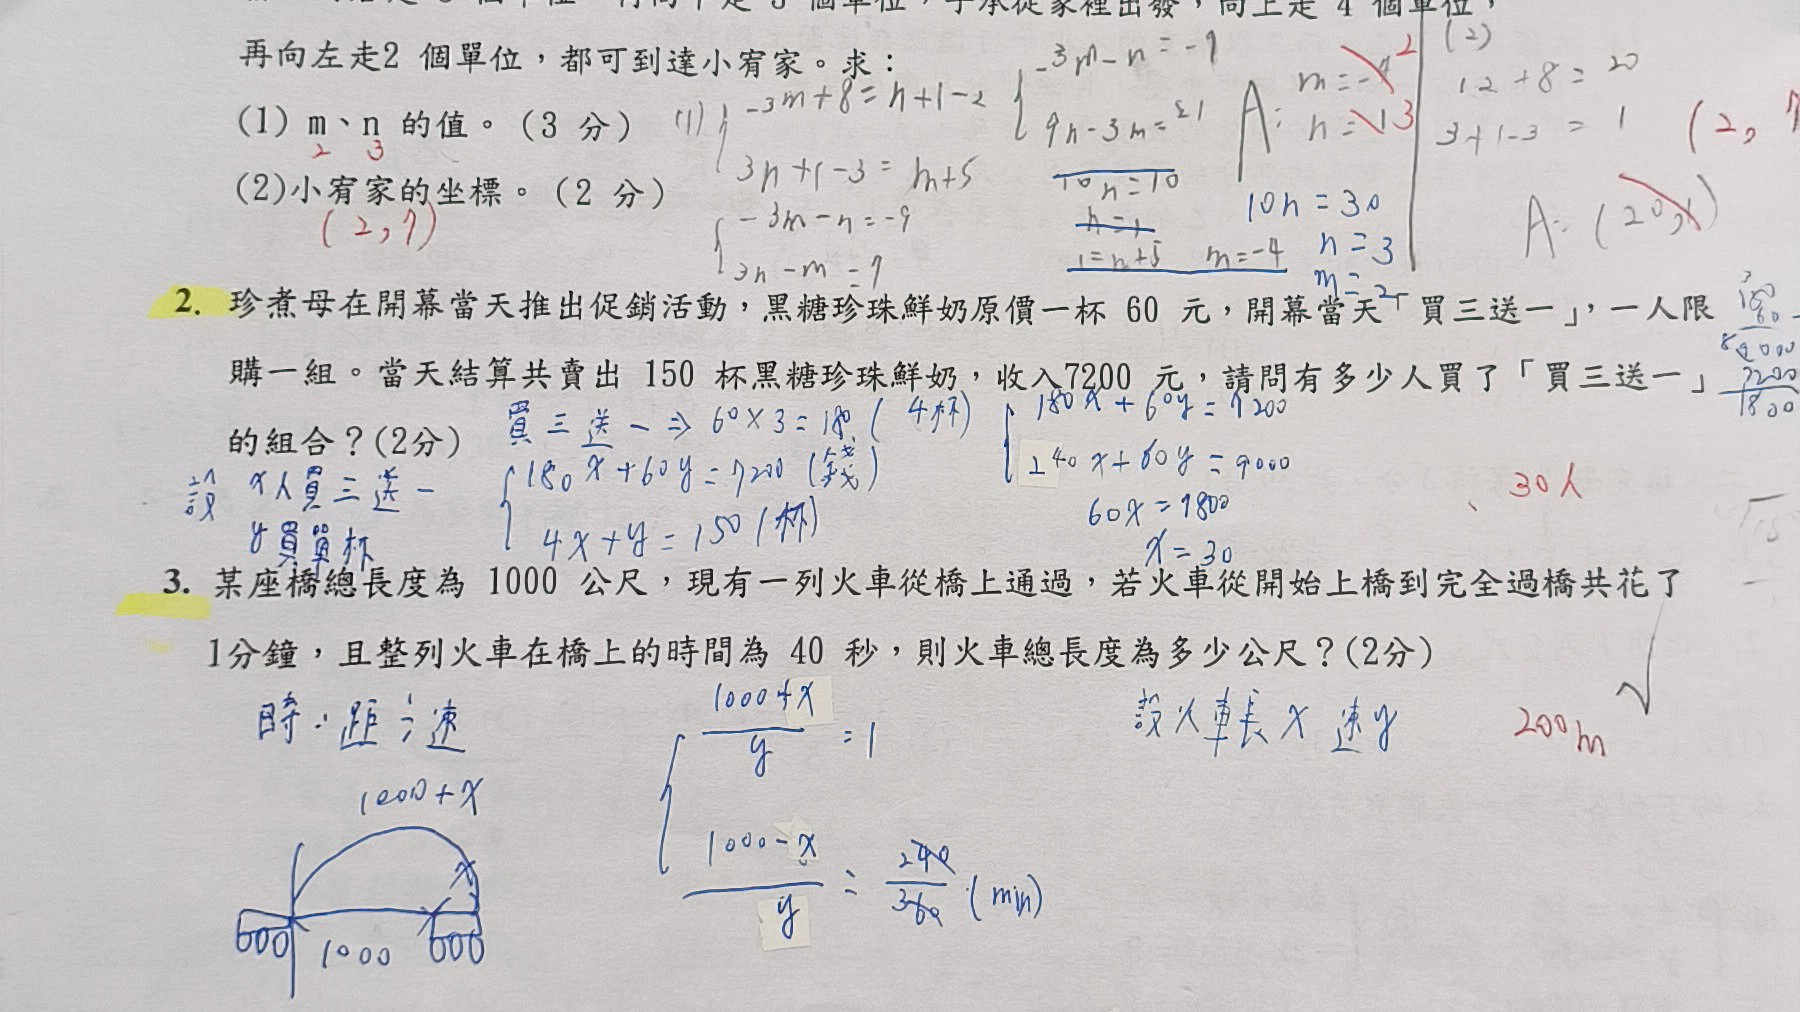 個單位，子承從家裡出發，向上走 4 個單位，
再向左走2 個單位，都可到達小宥家。求：
(1) m、n 的值。（3 分）
2 3
(2)小宥家的坐標。（2 分）
(2,7)
(1) -3m+8=n+1-2
3n+1-3=m+5
-3m-n=-9
3n-m=7
-3m-n=-9
9n-3m=21
10n=10
n=1
1=n+5 m=-4
A: m=-4 2
n=1 3
10n=30
n=3
m=2
(2)
12+8=20
3+1-3=1
A: (20,1)
2. 珍煮母在開幕當天推出促銷活動，黑糖珍珠鮮奶原價一杯 60 元，開幕當天「買三送一」，一人限
購一組。當天結算共賣出 150 杯黑糖珍珠鮮奶，收入7200 元，請問有多少人買了「買三送一」
的組合？(2分)
150
60
9000
7200
1800
買三送一⇒60×3=180 (4杯)
設 x人買三送一
y買單杯
180x+60y=7200 (錢)
4x+y=150 (杯)
180x+60y=7200
240x+60y=9000
60x=1800
x=30
30人
3. 某座橋總長度為 1000 公尺，現有一列火車從橋上通過，若火車從開始上橋到完全過橋共花了
1分鐘，且整列火車在橋上的時間為 40 秒，則火車總長度為多少公尺？(2分)
時：距÷速
1000+x
x
1000
1000+x
y
=1
1000-x
y
=
240
360
(min)
設火車長x 速y
200m